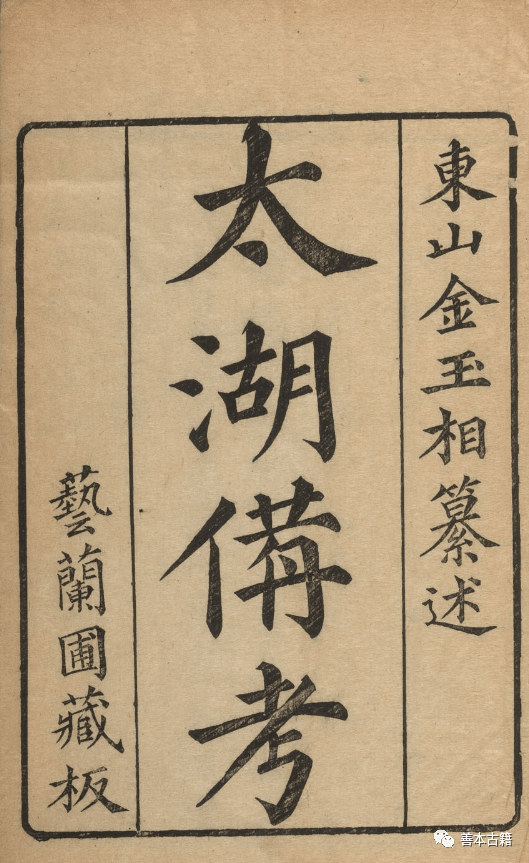 東山金玉相纂述
太湖備考
藝蘭圃藏板
善本古籍